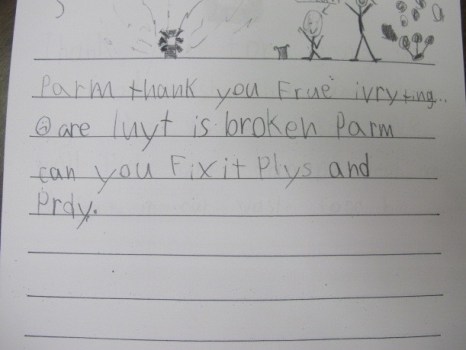 Parm thank you Frue ivryting..
are luyt is broken Parm
can you Fix it Plys and
Prdy.